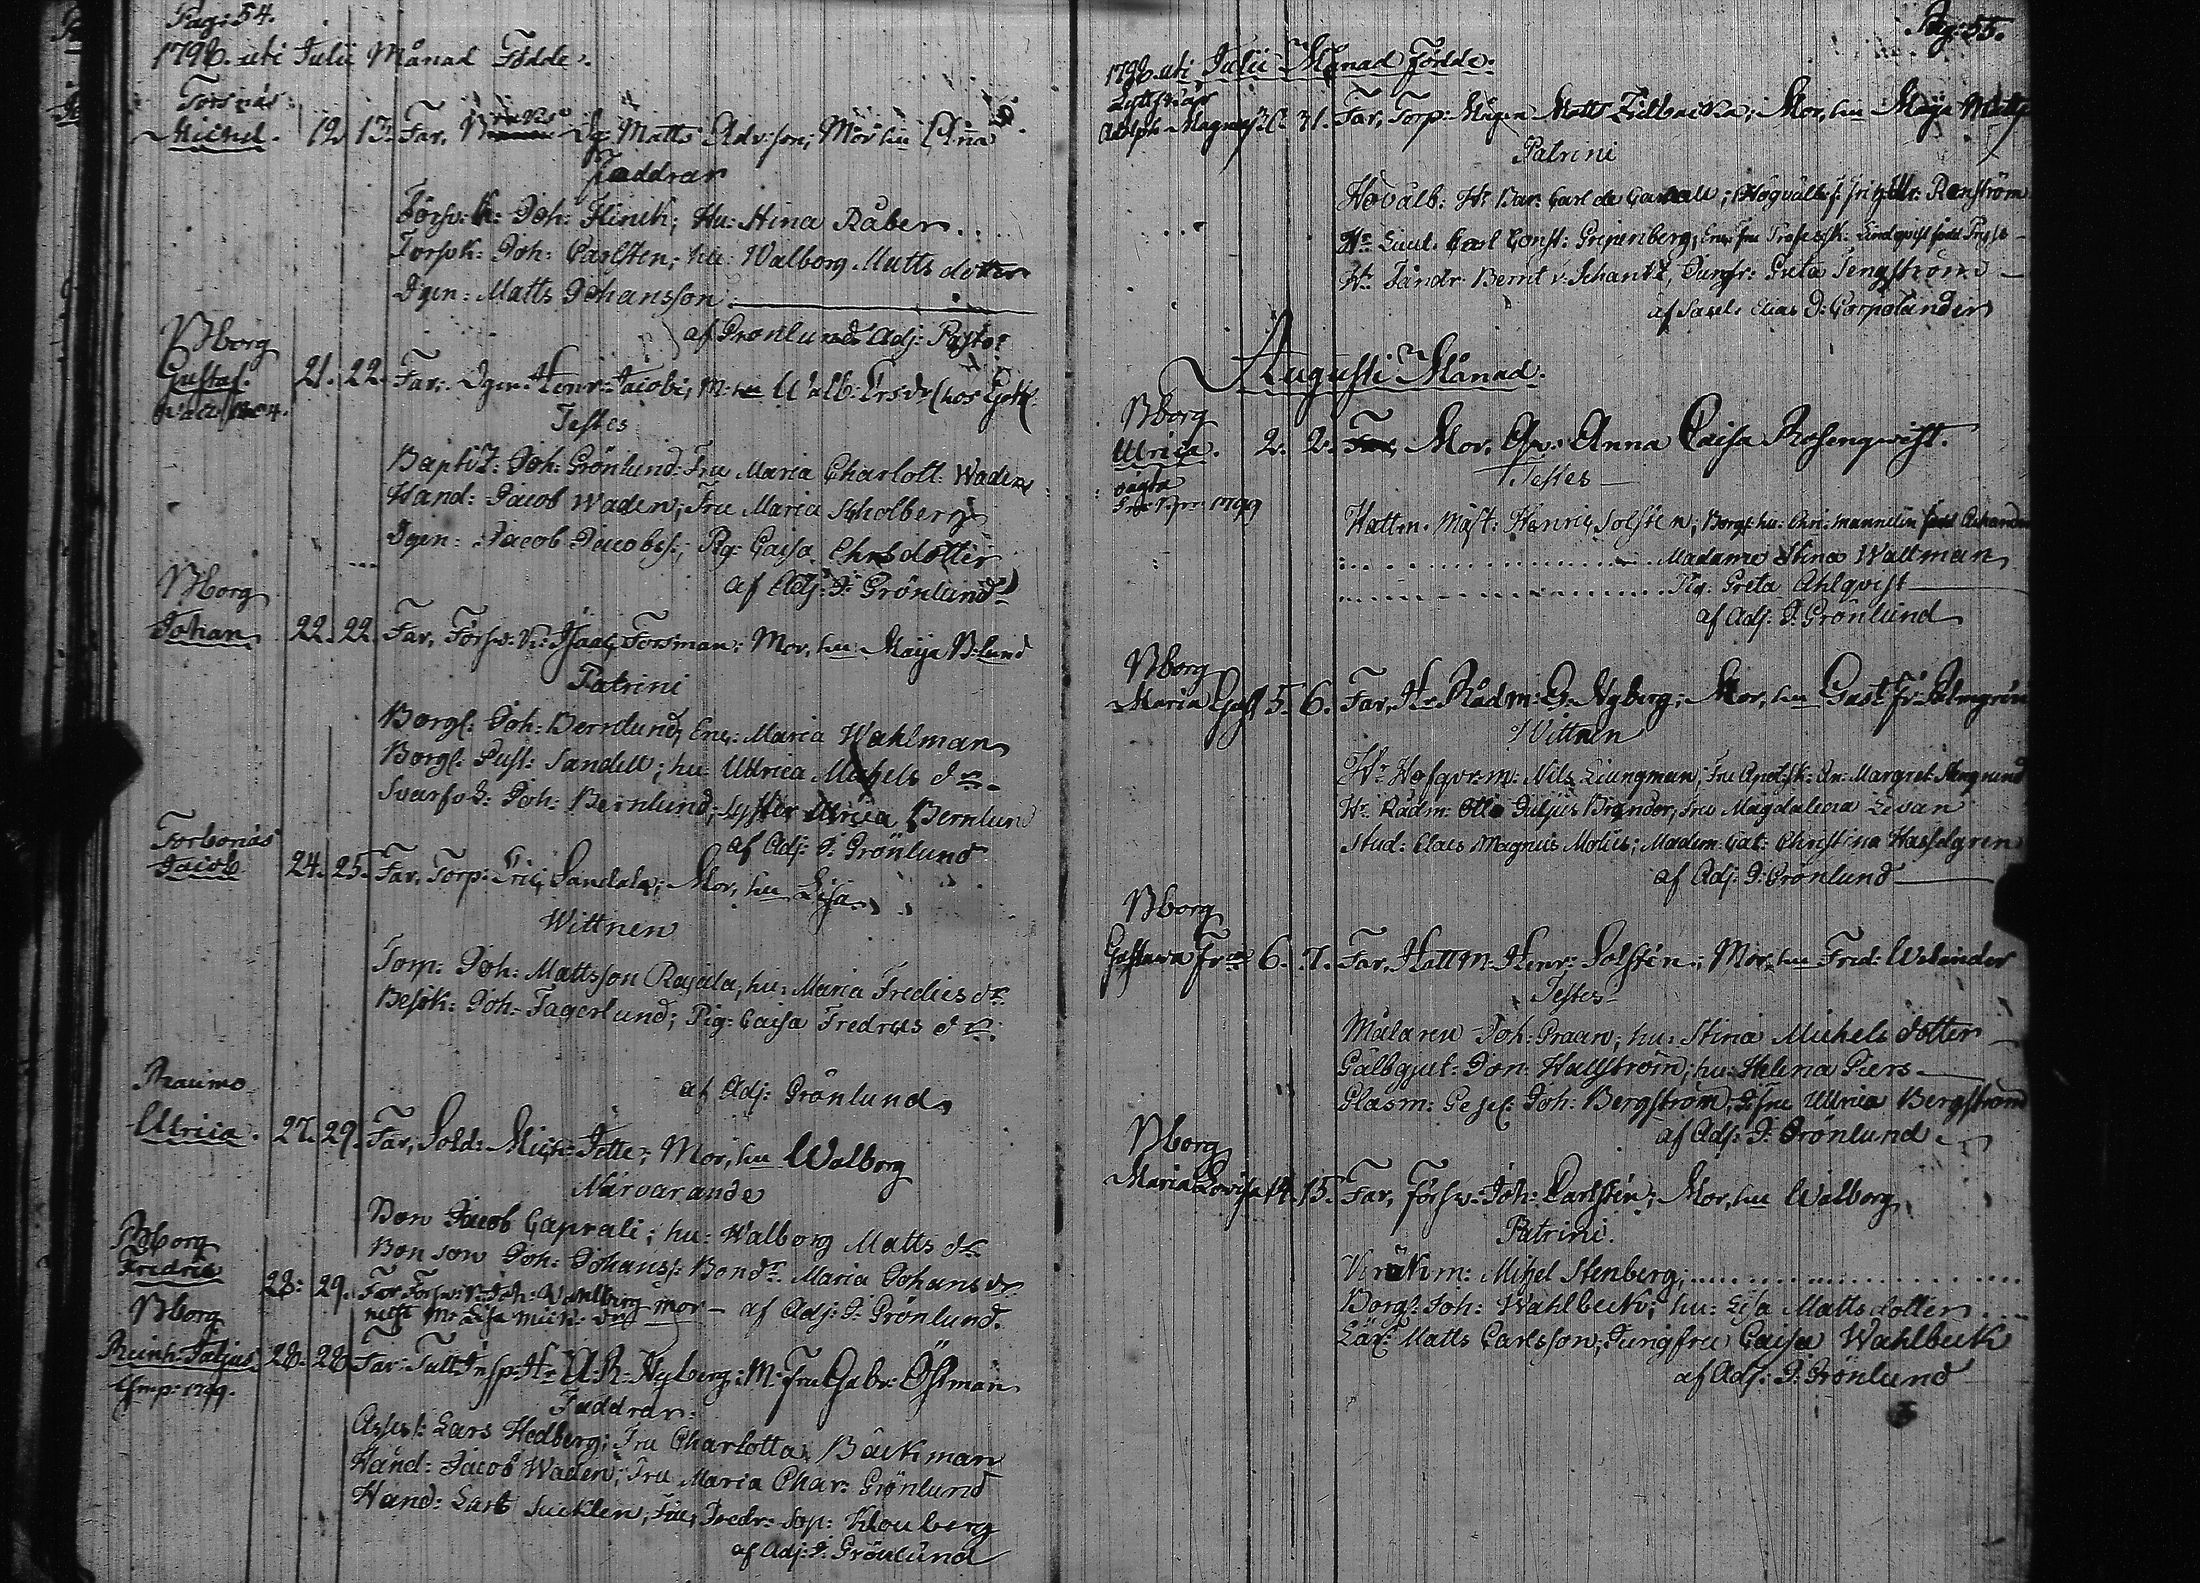 Pag: 54.
1798. uti Julii Månad Födde.
Torsnäs
Michel. 12 13. Far, Dr. Matts Adv:son; Mor hu Aña
Faddrar
Försv: K: Joh: Flinck; Hu: Stina Råber
Torpk: Joh: Carlsten; hu: Walborg Matts dotter
Dgn: Matts Johansson
af Grönlund Adj: Pastor
Bborg
Gustaf. 21. 22. Far: Dgn: Henr: Jacobs; M: hu Walb: Ersdr
Testes
Baptiz: Joh: Grönlund: Fru Maria Charlott: Waden
Hand: Jacob Waden; Fru Maria
Dgn: Jacob Jacobs:; Pig: Caisa dotter
af Adj: J: Grönlund
Bborg
Johan 22. 22. Far, Försv: K: Isaac Forsman; Mor, hu Maija B:lund
Patrini
Borgl: Joh: Bernlund, Enk: Maria Wahlman
Borgl: Gust: Sandell; hu: Ullrica Michels dr
Svarfv: Joh: Bernlund; Syster Ulrica Bernlund
af Adj: J: Grönlund
Torbonäs
Jacob 24. 25. Far, Torp: Eric Sandala; Mor, hu Lisa
Wittnen
Torp: Joh: Mattsson Rajala, hu: Maria Fredics dr
Besök: Joh: Fagerlund; Pig: Caisa Fredrics dr
af Adj: Grönlund
Raumo
Ulrica. 27. 29. Far, Sold: Mich: Tette; Mor, hu Walborg
Närvarande
Bon Jacob Caprali; hu: Walborg Matts dr
Bon son Joh: Johans: Bondr. Maria Johans dr
af Adj: J: Grönlund.
Bborg
Fredric 28. 29. Far Försv: K: Joh: Wahlberg mor
Lisa Mick: dr
Bborg
Reinh: Julius. 28. 28. Far: Tull Insp: Hr U: R: Nyberg; M: Fru Gabr: Östman
1799.
Faddrar:
Assess: Lars Hedberg; Fru Charlotta Bäckman
Hand: Jacob Waden; Fru Maria Char: Grönlund
Hand: Lars Sucklen; Fru Fredr: Sop: Klouberg
af Adj: J: Grönlund
Pag: 55.
1798. uti Julii Månad Födde.
Adolph Magnus 30. 31. Far, Torp: Mågen Matts Zilbacka; Mor, hu Maija Matts
Patrini
Hr Bar: Carl de Carnall; Renström
Hr Lieut: Carl Const: Gripenberg;
Hr Fändr Bernt v: Schantz, Jungfr: Greta Tengström
af Sacel: Elias J: Corpolander
Augusti Månad.
Bborg
Ulrica. 2. 2. Mor, Qv: Anna Caisa Rosenqwist.
oägta
1799
Testes
Hattm: Mäst: Henric Solsten; Borgl: hu: Chri: Mannelin född
Madame Stina Waltman
Pig: Greta Ahlqvist
af Adj: J: Grönlund
Bborg
Maria Gust 5. 6. Far, Hr Rådm: G: Nyberg; Mor, hu Gust Fr: Palmgren
Wittnen
Hr Hofqvr:m: Nils Liungman; Fru Apot:sk: An: Margret
Hr Rådm: Otto Julius Brander, Fru Magdalena Levan
Stud: Claes Magnus Molius; Madem: Cat: Christina Hasselgren
af Adj: J: Grönlund
Bborg
Gustava Fr:ca 6. 7. Far, Hattm: Henr: Solsten; Mor, hu Fred: Welinder
Testes
Målaren Joh: Praan; hu: Stina Michels dotter
Gälbgjut: Jon: Hallström; hu: Helena Piers
Glasm: Gesel: Joh: Bergström; Jgfru Ullrica Bergström
af Adj: J: Grönlund
Bborg
Maria Lovisa 14. 15. Far, Försv: Joh: Carlsten; Mor, hu Walborg
Patrini.
Mihel Stenberg;
Borgl: Joh: Wahlbeck; hu: Lisa Matts dotter
Lär: Matts Carlsson; Jungfru Caisa Wahlbeck
af Adj: J: Grönlund